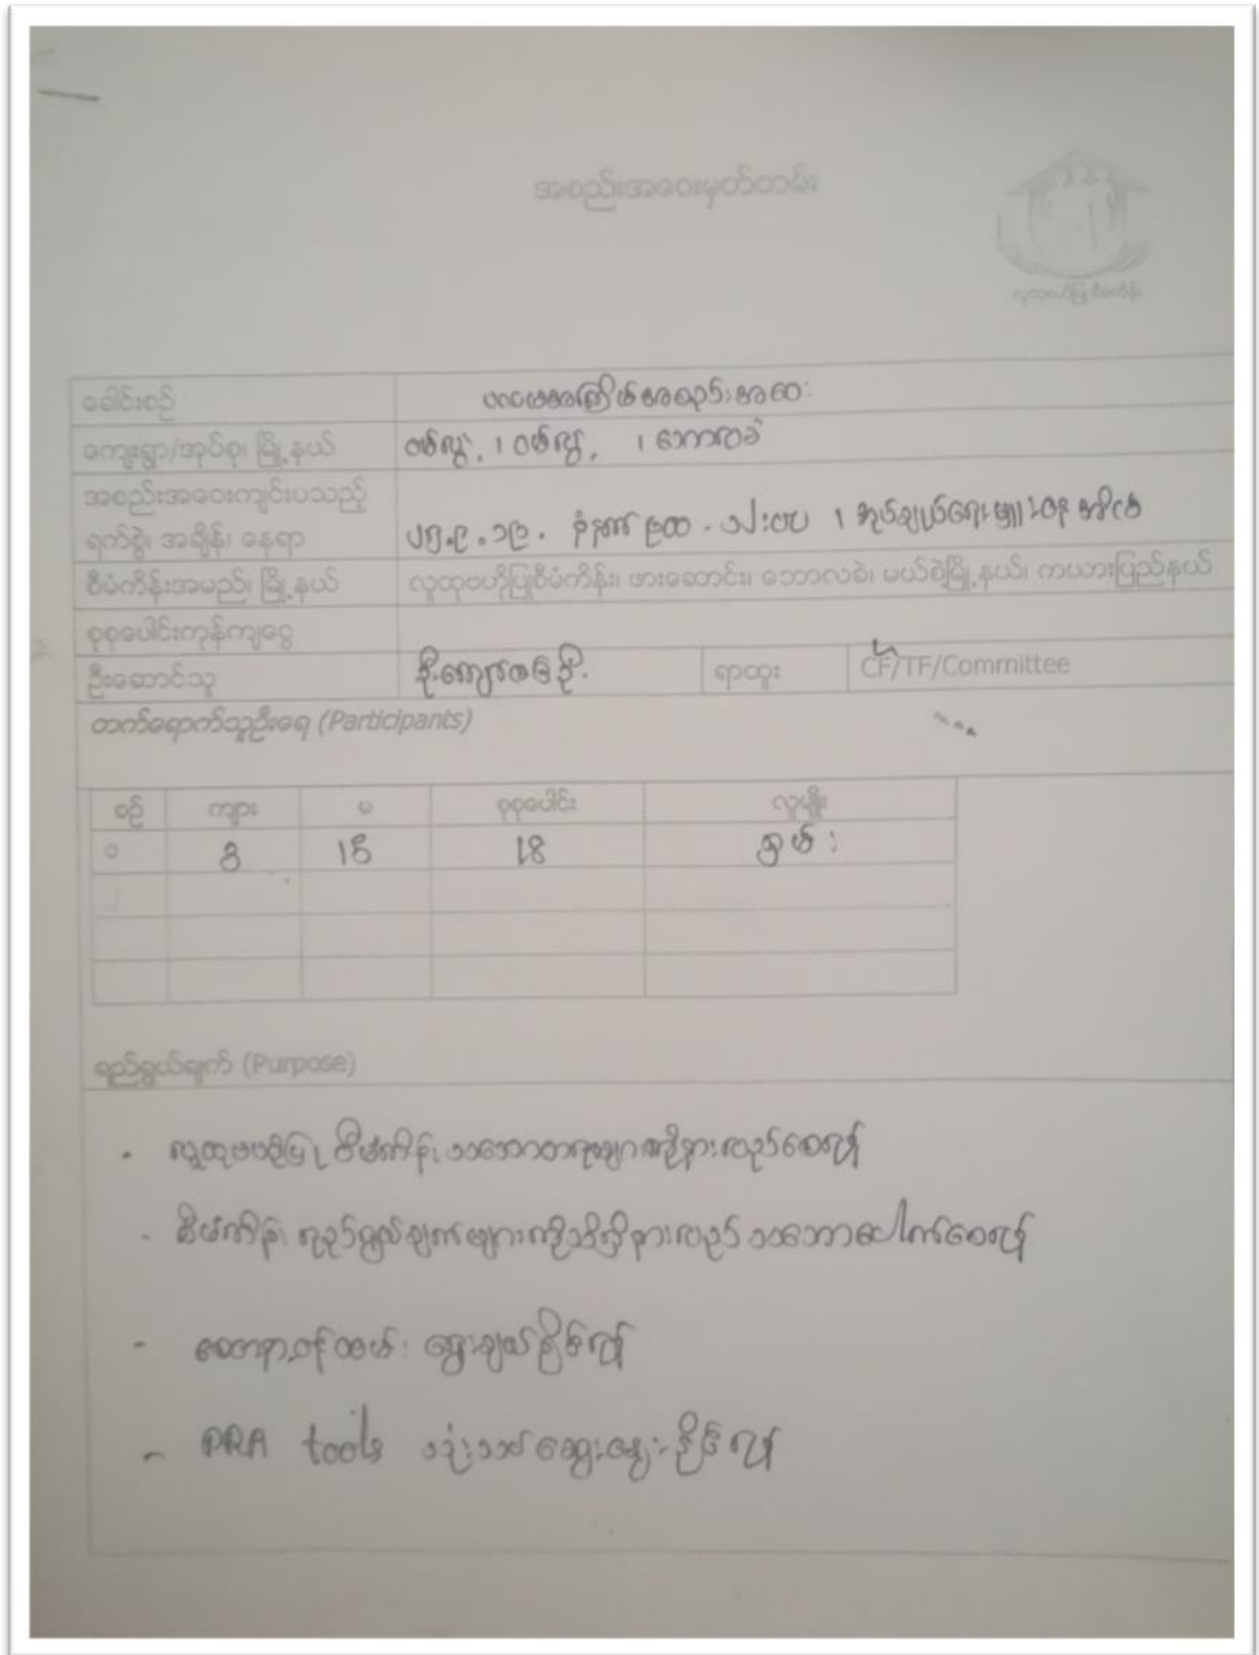 အစည်းအဝေးမှတ်တမ်း
လူထုဗဟိုပြု စီမံကိန်း
ခေါင်းစဉ် ပထမအကြိမ်အစည်းအဝေး
ကျေးရွာ/အုပ်စု၊ မြို့နယ် ဝမ်လွဲ့ ၊ ဝမ်လွဲ့ ၊ ဘောလခဲ
အစည်းအဝေးကျင်းပသည့်
ရက်စွဲ၊ အချိန်၊ နေရာ
စီမံကိန်းအမည်၊ မြို့နယ် လူထုဗဟိုပြုစီမံကိန်း၊ ဖားဆောင်း၊ ဘောလခဲ၊ မယ်စဲ့မြို့နယ်၊ ကယားပြည်နယ်
စုစုပေါင်းကုန်ကျငွေ
ဦးဆောင်သူ ရာထူး CF/TF/Committee
တက်ရောက်သူဦးရေ (Participants)
စဉ် ကျား မ စုစုပေါင်း လူမျိုး
၁ 3 15 18 ရှမ်း
၂
ရည်ရွယ်ချက် (Purpose)
• လူထုဗဟိုပြု စီမံကိန်း သဘောတရားများကိုနားလည်စေရန်
- စီမံကိန်း ရည်ရွယ်ချက်များကိုသိရှိနားလည် သဘောပေါက်စေရန်
- စေတနာ့ဝန်ထမ်း ရွေးချယ်နိုင်ရန်
- PRA tools သုံးသပ်ဆွေးနွေးနိုင်ရန်